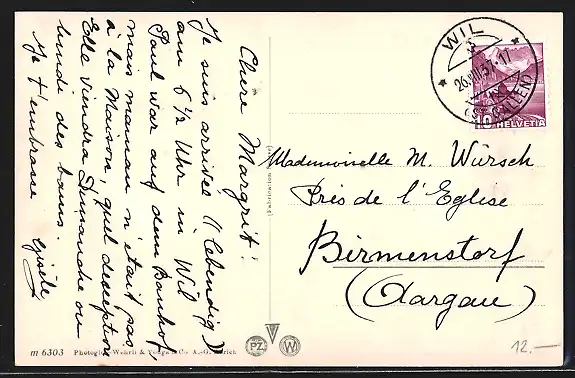 Chère Margrit!
Je suis arrivée (lebendig)
am 6 1/2 Uhr in Wil
Paul war auf dem Bahnhof
mais maman n'était pas
à la Maison, quel deception
Elle viendra Dimanche ou
lundi des bains.
Je t'embrasse
Gisèle
WIL
26.VIII.37.-17
(ST. GALLEN)
10 HELVETIA
Mademoiselle M. Würsch
Près de l'Eglise
Birmenstorf
(Aargau)
m 6303 Photoglob-Wehrli & Vouga & Co A.-G. Zürich
PZ W
12.—